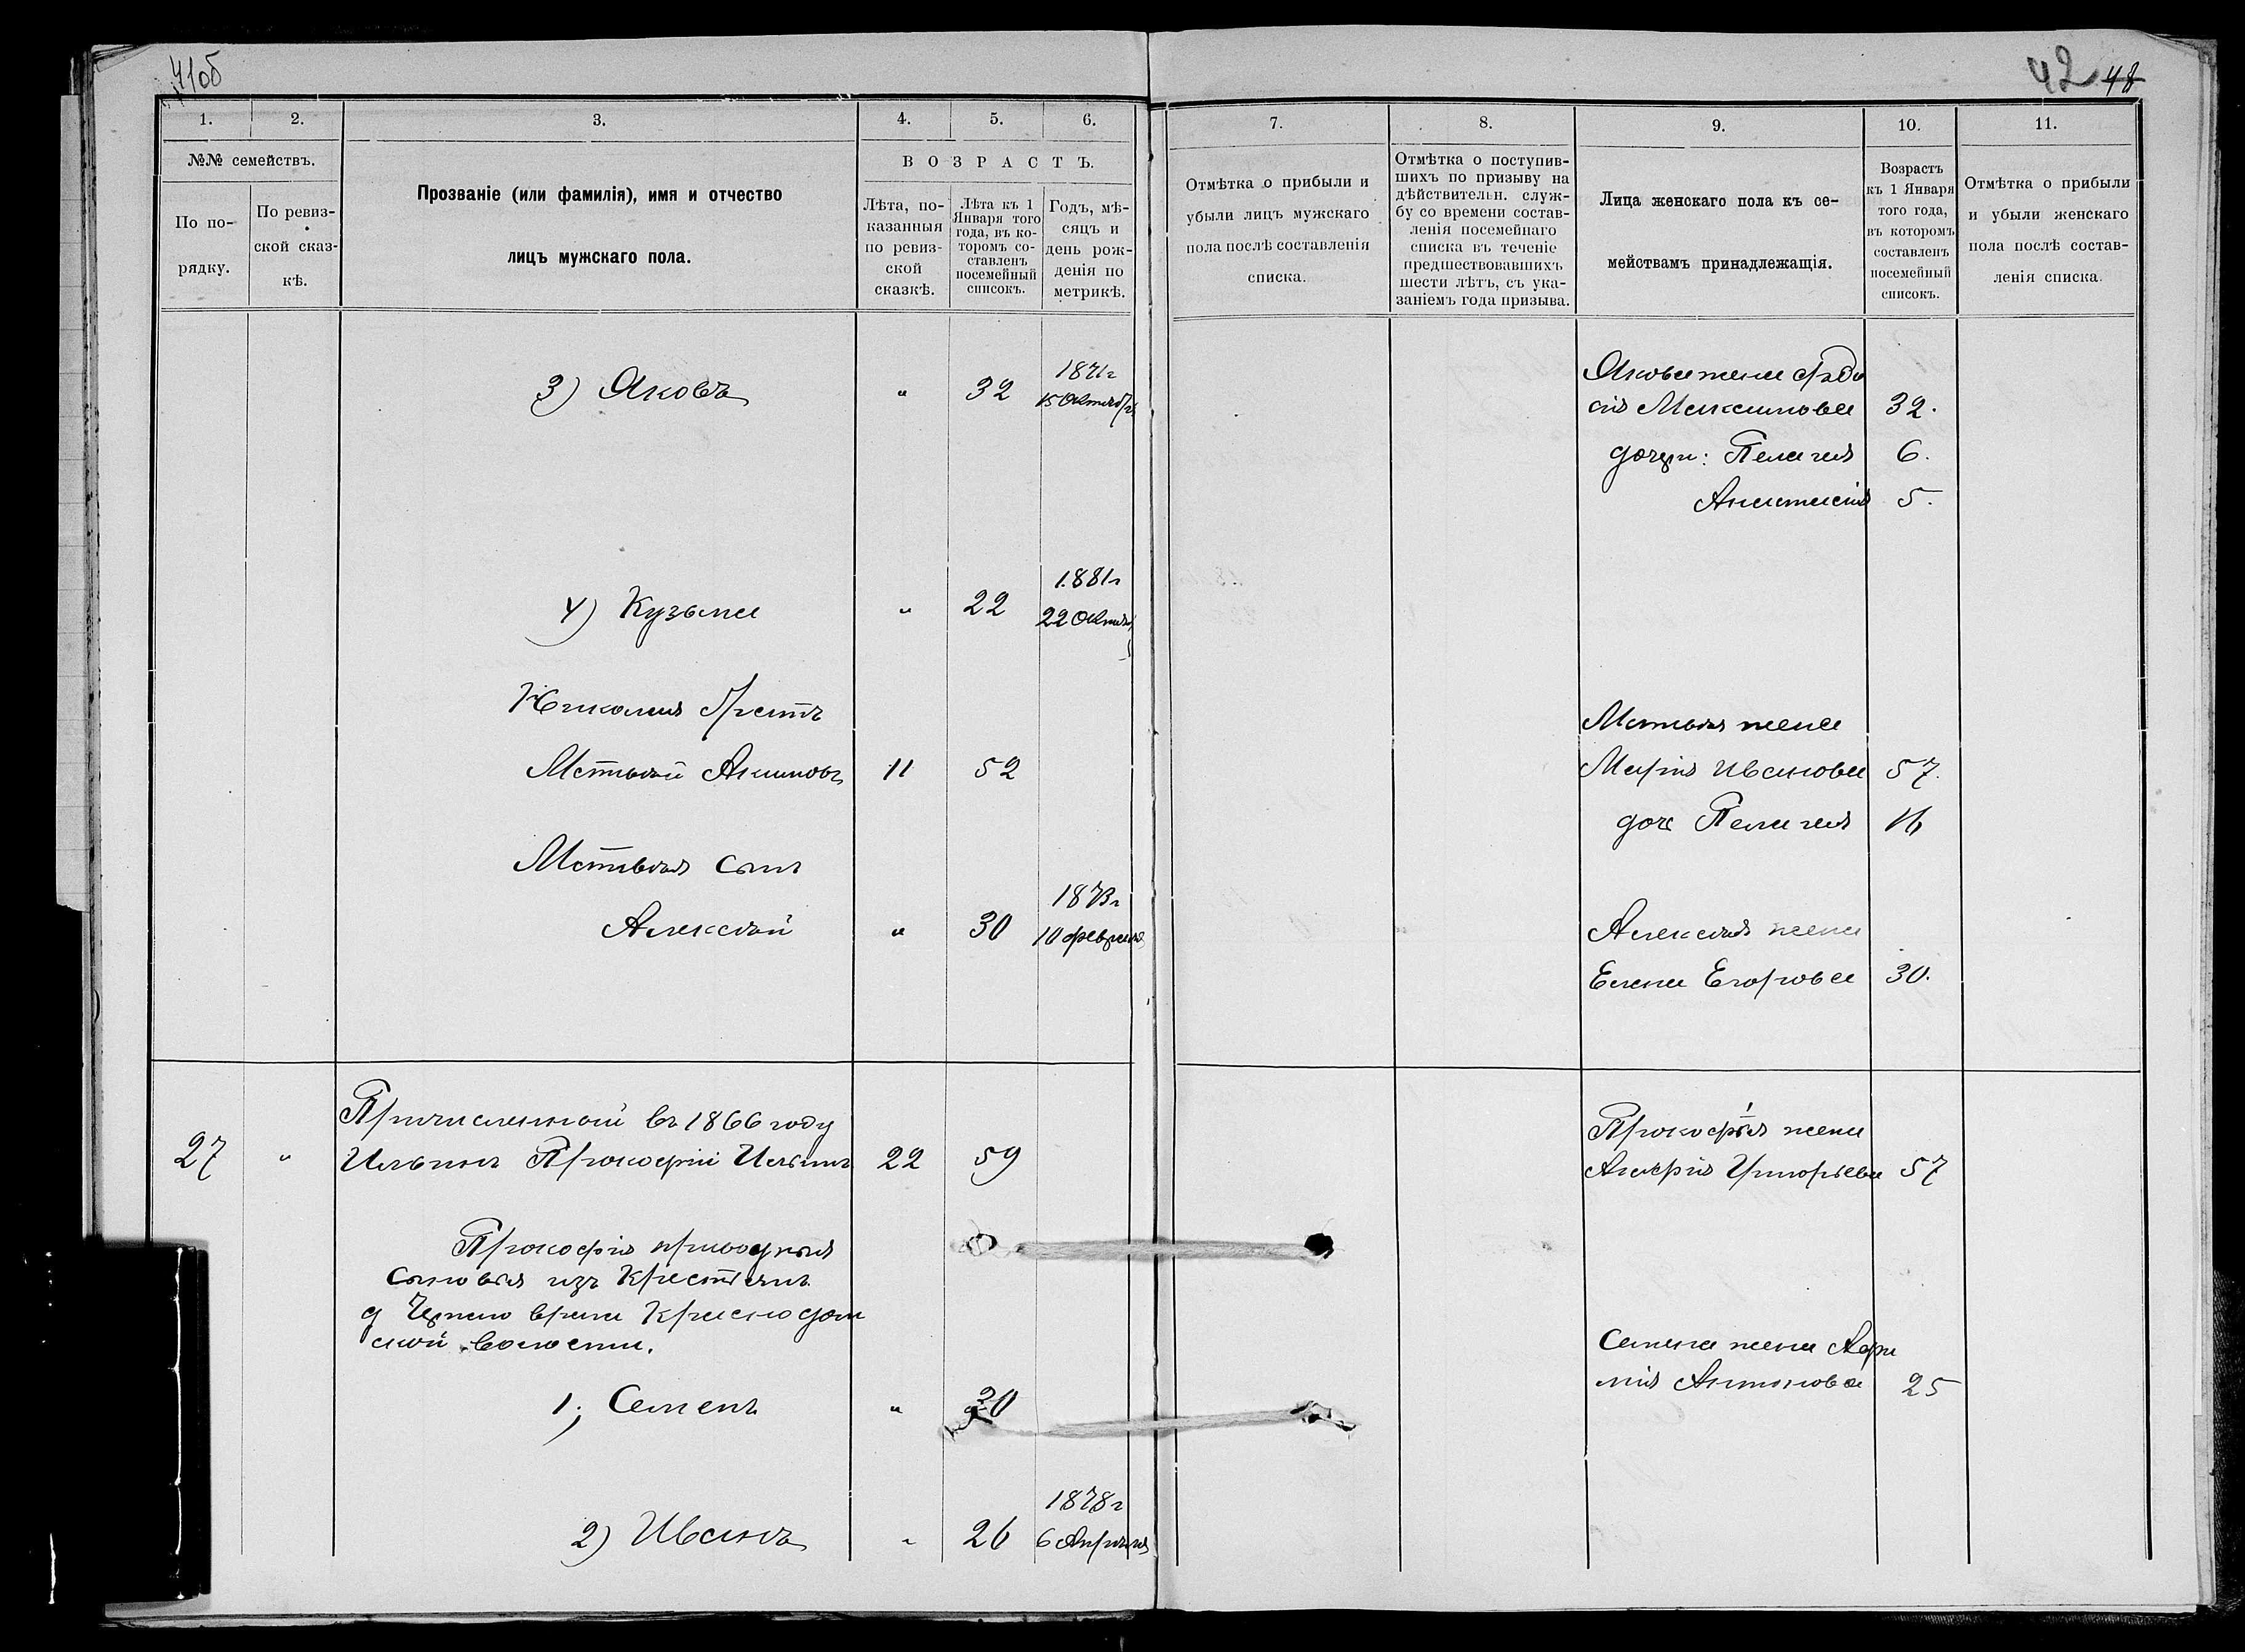 41об
42 48
1. 2. 3. 4. 5. 6.
№№ семействъ.
По по-
рядку.
По ревиз-
ской сказ-
кѣ.
Прозваніе (или фамилія), имя и отчество
лицъ мужскаго пола.
ВОЗРАСТЪ.
Лѣта, по-
казанныя
по ревиз-
ской
сказкѣ.
Лѣта къ 1
Января того
года, въ ко-
торомъ со-
ставленъ
посемейный
списокъ.
Годъ, мѣ-
сяцъ и
день рож-
денія по
метрикѣ.
7. 8. 9. 10. 11.
Отмѣтка о прибыли и
убыли лицъ мужскаго
пола послѣ составленія
списка.
Отмѣтка о поступив-
шихъ по призыву на
дѣйствительн. служ-
бу со времени состав-
ленія посемейнаго
списка въ теченіе
предшествовавшихъ
шести лѣтъ, съ ука-
заніемъ года призыва.
Лица женскаго пола къ се-
мействамъ принадлежащія.
Возрастъ
къ 1 Января
того года,
въ которомъ
составленъ
посемейный
списокъ.
Отмѣтка о прибыли
и убыли женскаго
пола послѣ состав-
ленія списка.
3) Яковъ " 32 1871г
15 Октября
Якова жена Ѳедо
сія Максимова 32.
дочери: Пелагея 6.
Анастасія 5.
4) Кузьма " 22 1881г
22 Октяб
Николая братъ
Матвѣй Акимовъ 11 52
Матвѣя жена
Марія Иванова 57.
доч Пелагея 16
Матвѣя сынъ
Алексѣй " 30 1873г
10 февраля
Алексѣя жена
Елена Егорова 30.
27 " Причисленный въ 1866 году
Ильинъ Прокофій Ильинъ 22 59
Прокофія жена
Григорьева 57
Прокофія приводныя
сыновья изъ крестьянъ
д
ской волости.
1; Семенъ " 30
Семена жена
Антонова 25
2) Иванъ " 26 1878г
6 Апрѣля